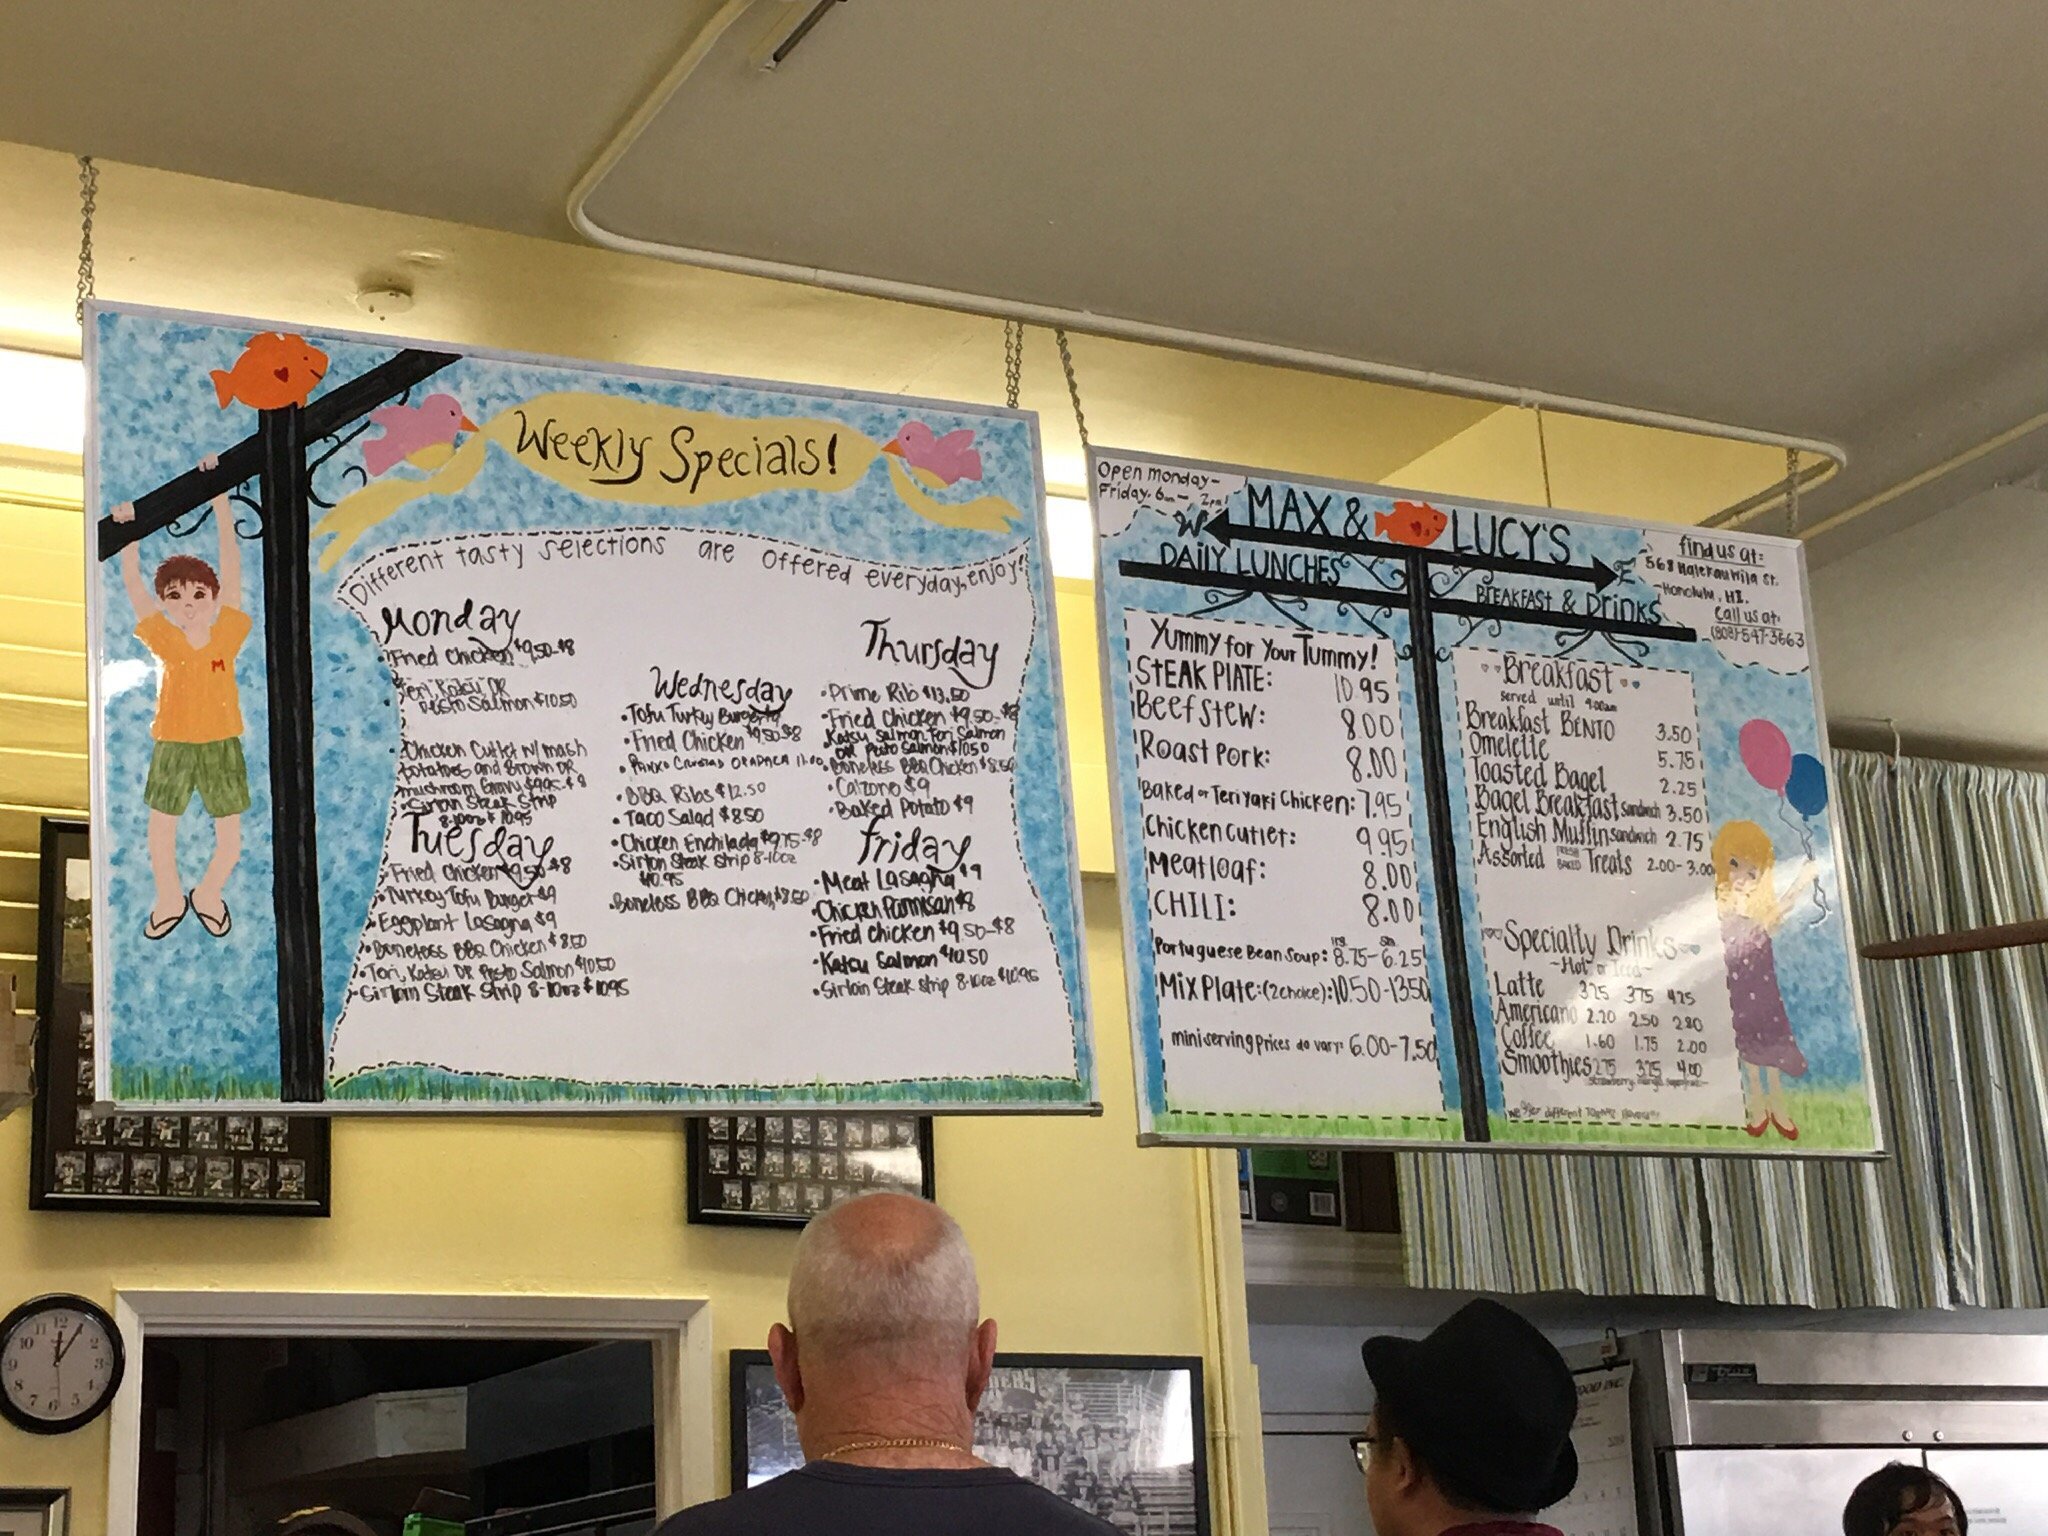 Weekly Specials!
Different tasty selections are offered everyday, enjoy!
Monday
• Fried Chicken $9.50-$8
Teri, Katsu OR
Pesto Salmon $10.50
• Chicken Cutlet w/ mash
potatoes and Brown OR
mushroom Gravy $9.95-$8
• Sirloin Steak Strip
8-10oz $10.95
Tuesday
• Fried Chicken $9.50-$8
• Turkey Tofu Burger $9
• Eggplant Lasagna $9
• Boneless BBQ Chicken $8.50
• Teri, Katsu OR Pesto Salmon $10.50
• Sirloin Steak Strip 8-10oz $10.95
Wednesday
• Tofu Turkey Burger $9
• Fried Chicken $9.50-$8
• BBQ Ribs $12.50
• Taco Salad $8.50
• Chicken Enchilada $9.75-$8
• Sirloin Steak Strip 8-10oz
$10.95
• Boneless BBQ Chicken $8.50
Thursday
• Prime Rib $13.50
• Fried Chicken $9.50-$8
Katsu Salmon Teri Salmon
OR Pesto Salmon $10.50
• Boneless BBQ Chicken $8.50
• Calzone $9
• Baked Potato $9
Friday
• Meat Lasagna $9
• Chicken Parmesan $8
• Fried Chicken $9.50-$8
• Katsu Salmon $10.50
• Sirloin Steak Strip 8-10oz $10.95
Open Monday-
Friday. 6am- 2pm!
W MAX & LUCY'S E
find us at:
568 Halekauwila St.
~Honolulu, HI.
Call us at:
(808)-547-3663
DAILY LUNCHES
Yummy for Your Tummy!
STEAK PLATE: 10.95
Beef Stew: 8.00
Roast Pork: 8.00
Baked or Teriyaki Chicken: 7.95
Chicken Cutlet: 9.95
Meatloaf: 8.00
CHILI: 8.00
lrg sm
Portuguese Bean Soup: 8.75-6.25
Mix Plate: (2 choice): 10.50-13.50
mini serving prices do vary: 6.00-7.50
BREAKFAST & Drinks
Breakfast
served until 9:00am
Breakfast BENTO 3.50
Omelette 5.75
Toasted Bagel 2.25
Bagel Breakfast sandwich 3.50
English Muffin sandwich 2.75
Assorted FRESH BAKED Treats 2.00-3.00
Specialty Drinks
~Hot or Iced~
Latte 3.25 3.75 4.25
Americano 2.20 2.50 2.80
Coffee 1.60 1.75 2.00
Smoothies 2.75 3.25 4.00
M
12
1
2
3
4
5
6
7
8
9
10
11